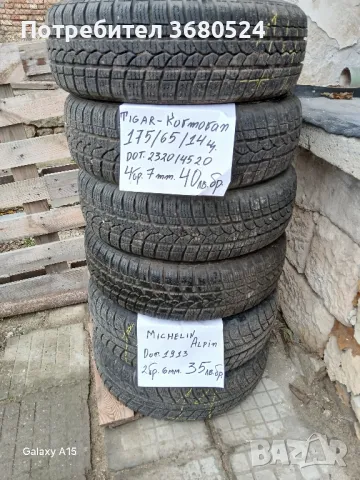 Потребител 3680524
TIGAR-Корморан
175/65/14ц.
DOT.2320/4520
4бр. 7mm. 40лв.бр.
MICHELIN/Alpin
Dot. 1913
2бр. 6mm. 35лв.бр
Galaxy A15
BAZAR